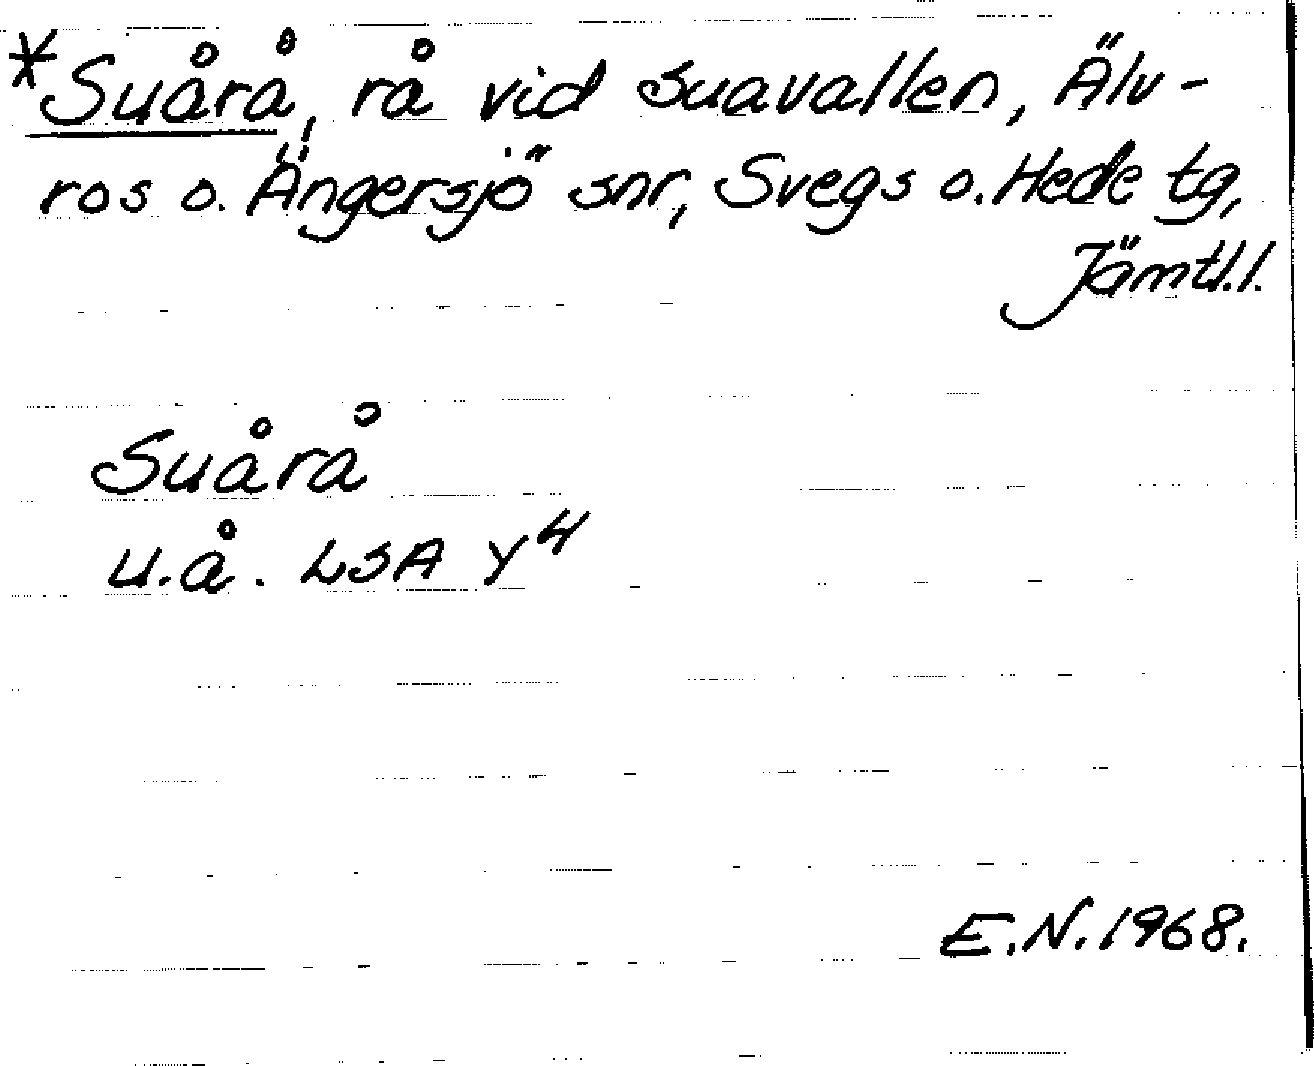 *Suårå, rå vid Suavallen, Älv-
ros o. Ängersjö snr, Svegs o. Hede tg,
Jämtl.l.
Suårå
u.å. LSA Y4
E.N. 1968.